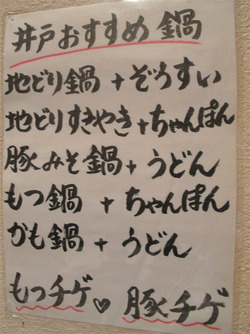 井戸おすすめ鍋
地どり鍋+ぞうすい
地どりすきやき+ちゃんぽん
豚みそ鍋+うどん
もつ鍋+ちゃんぽん
かも鍋+うどん
もつチゲ♡豚チゲ